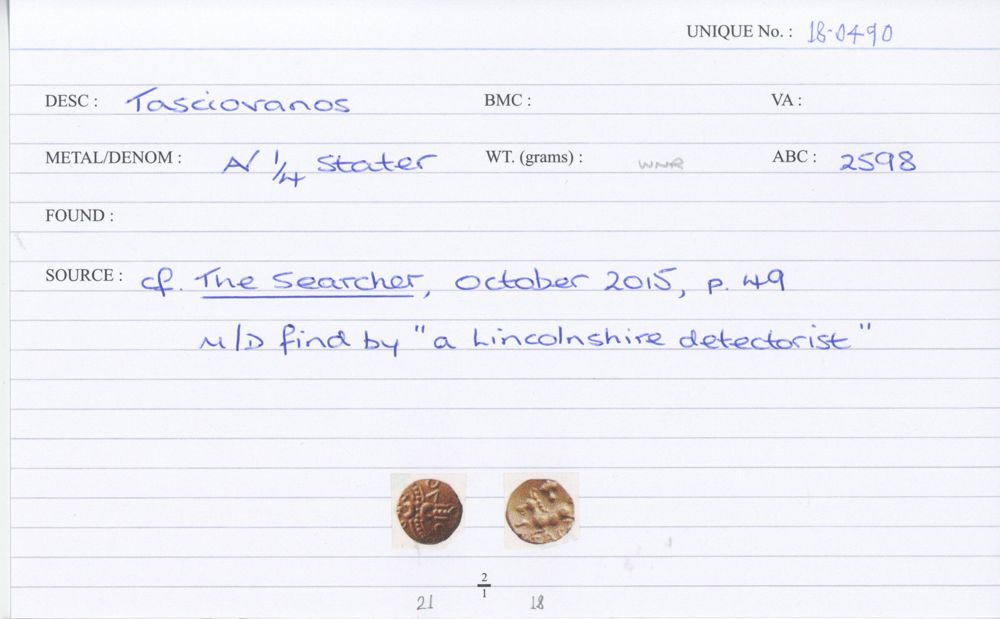 UNIQUE No. : 18-0490
DESC : Tasciovanos BMC : VA :
METAL/DENOM : A/ 1/4 Stater WT. (grams) : WNR ABC : 2598
FOUND :
SOURCE : cf. The Searcher, October 2015, p. 49
M/D find by "a Lincolnshire detectorist"
2
1
21 18